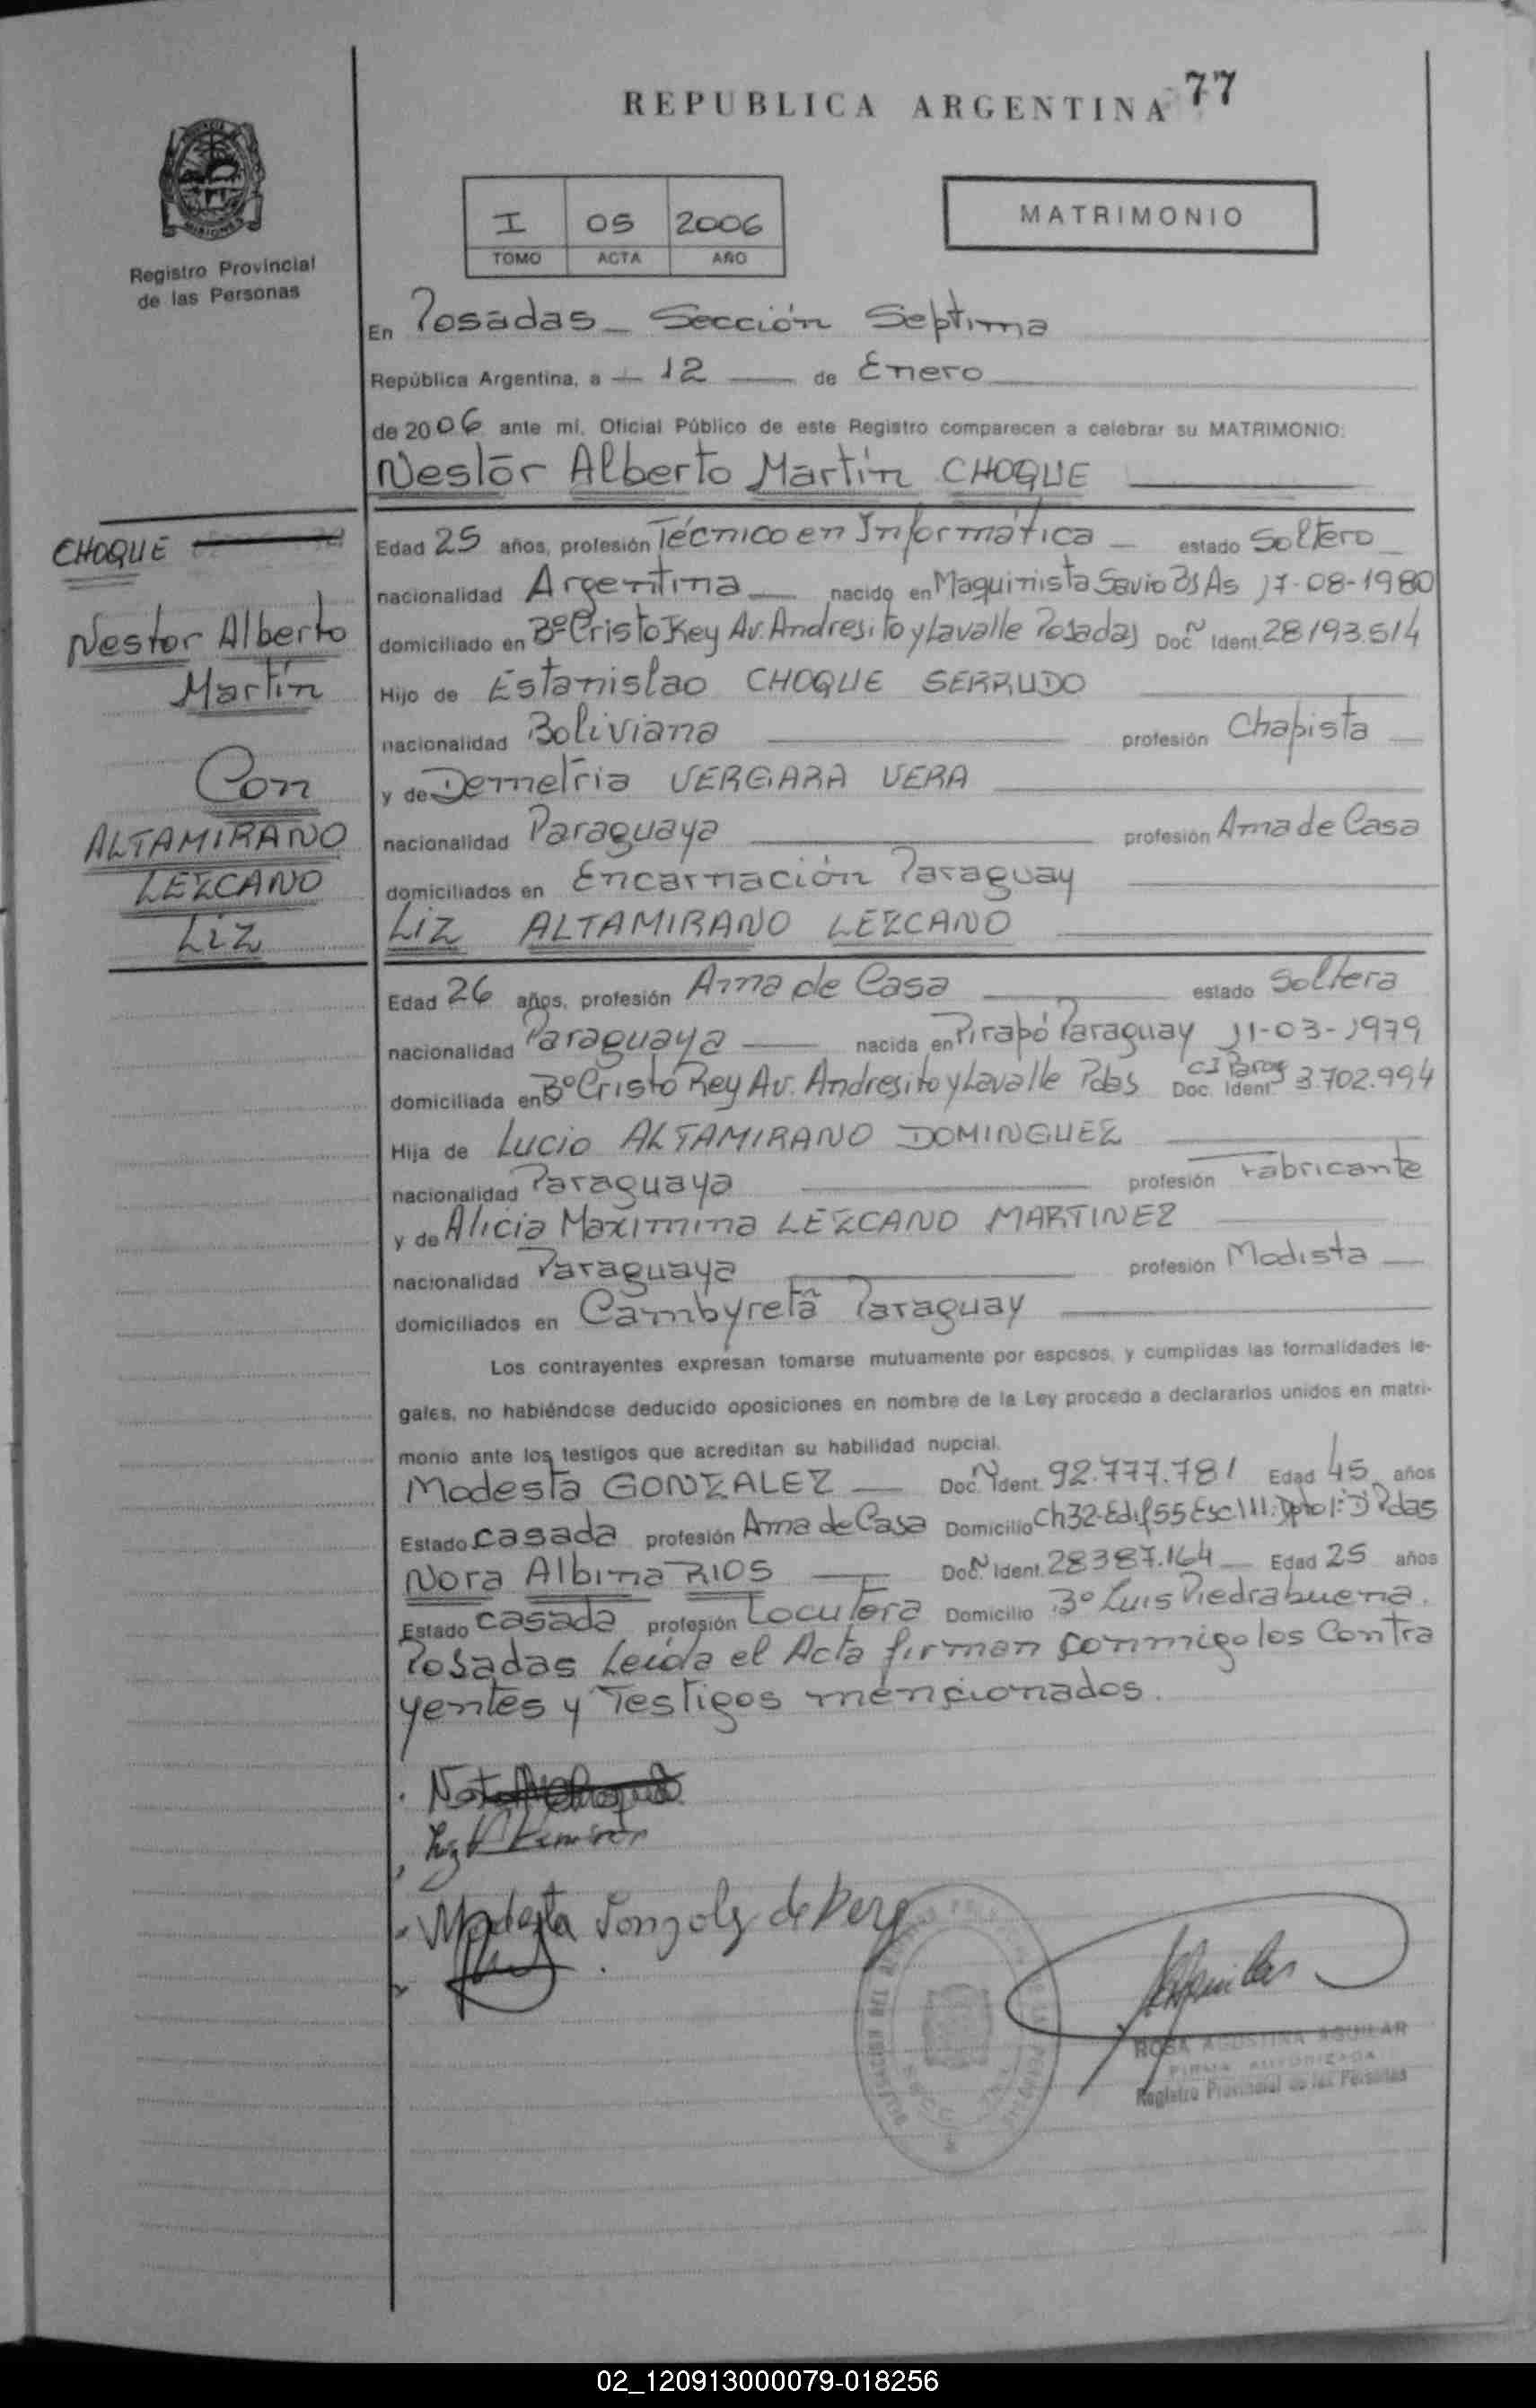 REPUBLICA ARGENTINA 77
Registro Provincial
de las Personas
I 05 2006
TOMO ACTA AÑO
MATRIMONIO
En Posadas - Sección Septima
República Argentina, a 12 de Enero
de 2006 ante mí, Oficial Público de este Registro comparecen a celebrar su MATRIMONIO:
Nestor Alberto Martín CHOQUE
CHOQUE
Nestor Alberto
Martín
Con
ALTAMIRANO
LEZCANO
Liz
Edad 25 años, profesión Técnico en Informática estado Soltero
nacionalidad Argentina nacido en Maquinista Savio Bs As 17-08-1980
domiciliado en Bº Cristo Rey Av. Andresito y Lavalle Posadas Doc. N Ident. 28193.514
Hijo de Estanislao CHOQUE SERRUDO
nacionalidad Boliviana profesión Chapista
y de Demetria VERGARA VERA
nacionalidad Paraguaya profesión Ama de Casa
domiciliados en Encarnación Paraguay
Liz ALTAMIRANO LEZCANO
Edad 26 años, profesión Ama de Casa estado Soltera
nacionalidad Paraguaya nacida en Pirapó Paraguay 11-03-1979
domiciliada en Bº Cristo Rey Av. Andresito y Lavalle Pdas Doc. Ident. CI Parag 3.702.994
Hija de Lucio ALTAMIRANO DOMINGUEZ
nacionalidad Paraguaya profesión Fabricante
y de Alicia Maximina LEZCANO MARTINEZ
nacionalidad Paraguaya profesión Modista
domiciliados en Cambyretã Paraguay
Los contrayentes expresan tomarse mutuamente por esposos, y cumplidas las formalidades le-
gales, no habiéndose deducido oposiciones en nombre de la Ley procedo a declararlos unidos en matri-
monio ante los testigos que acreditan su habilidad nupcial.
Modesta GONZALEZ Doc. N Ident. 92.777.781 Edad 45 años
Estado casada profesión Ama de Casa Domicilio Ch32-Edif 55 Esc. III. Dpto 1: D Pdas
Nora Albina RIOS Doc. N Ident. 28387.164 Edad 25 años
Estado casada profesión Locutora Domicilio Bº Luis Piedrabuena.
Posadas Leída el Acta firman conmigo los Contra
yentes y Testigos mencionados.
Modesta
ROSA AGUSTINA AGUILAR
FIRMA AUTORIZADA
Registro Provincial de las Personas
02_120913000079-018256